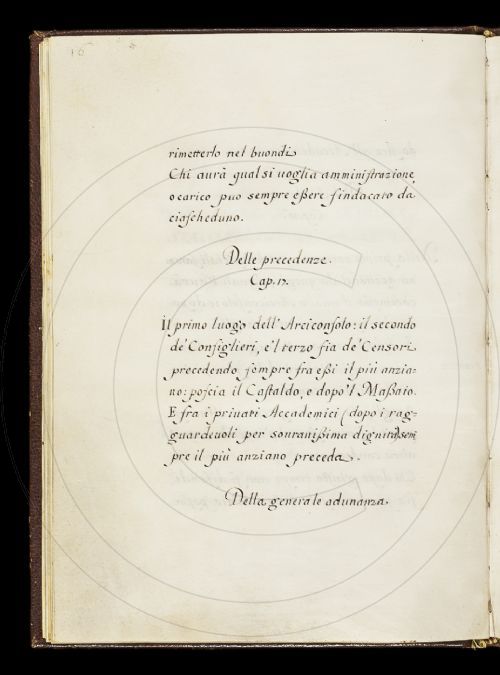 16
rimetterlo nel buondì.
Chi aurà qual si uoglia amminiſtrazione
o carico può sempre eßere ſindacato da
ciaſcheduno.
Delle precedenze.
Cap. 17.
Il primo luogo dell' Arciconſolo: il secondo
de' Conſiglieri, e 'l terzo ſia de' Cenſori
precedendo ſempre fra eßi il più anzia-
no: poſcia il Caſtaldo, e dopo 'l Maßaio.
E fra i priuati Accademici (dopo i rag-
guardeuoli per souranißima dignità) sem
pre il più anziano preceda.
Della generale adunanza.